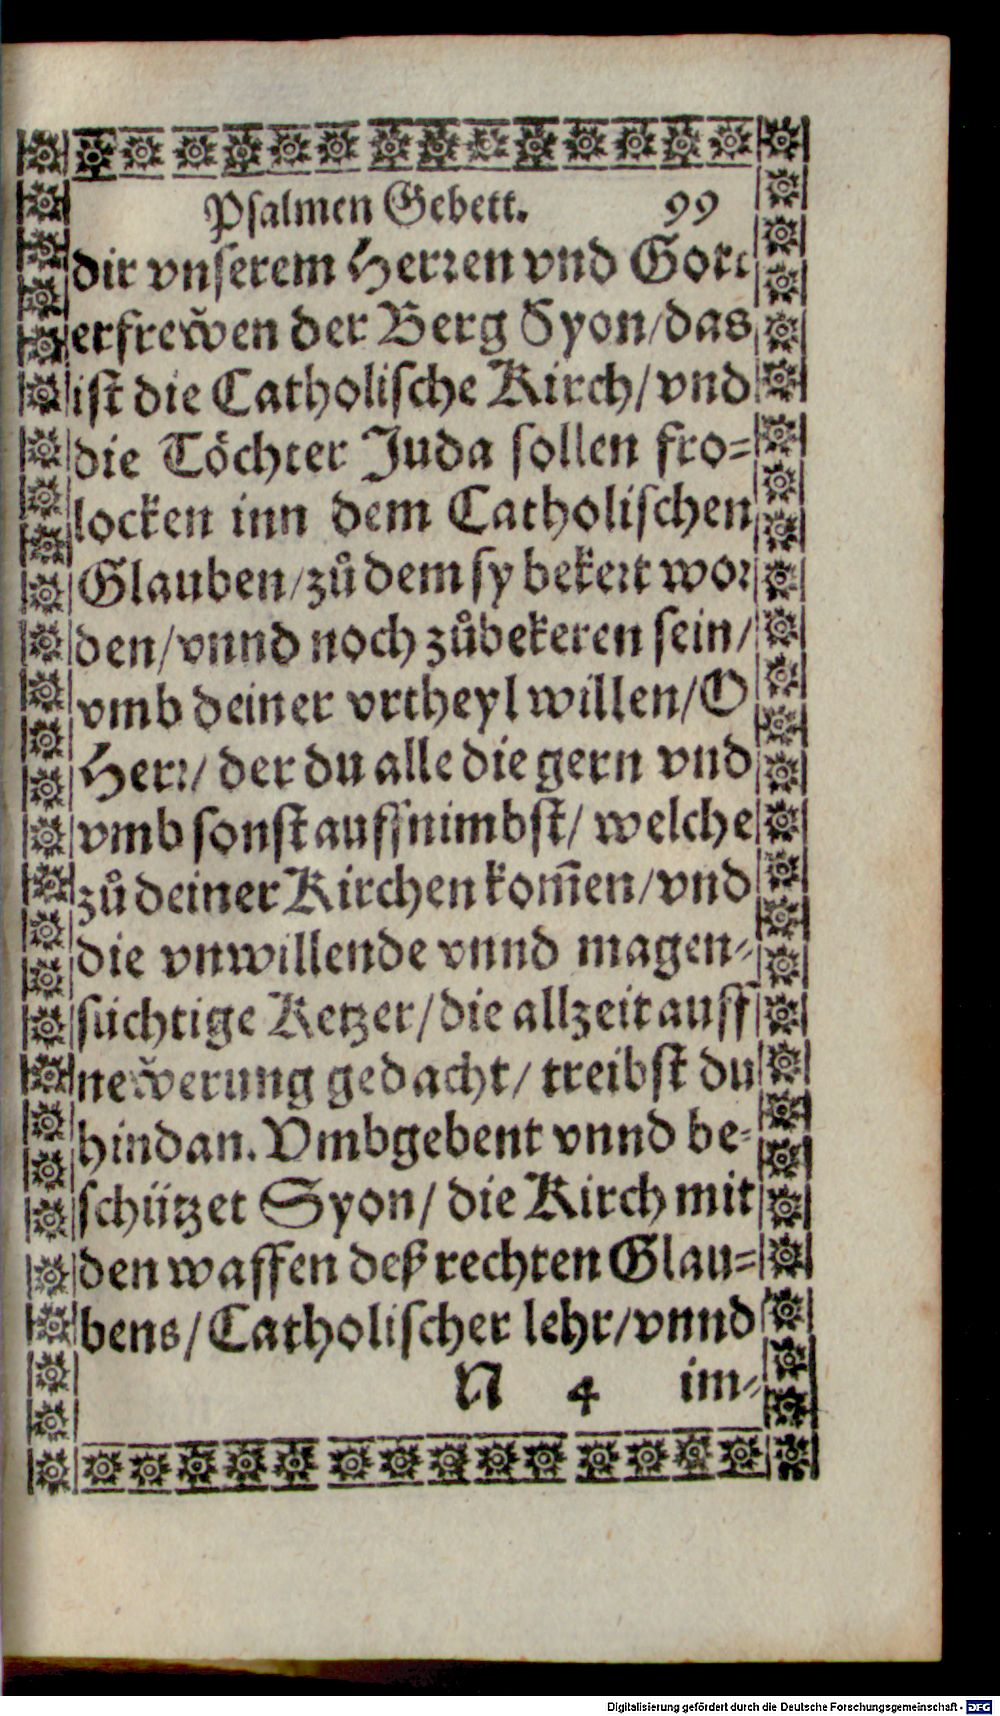 Psalmen Gebett. 99
dir vnserem Herren vnd Gott
erfrew̆en der Berg Syon/das
ist die Catholische Kirch/vnd
die Töchter Juda sollen fro-
locken inn dem Catholischen
Glauben/zů dem sy bekert wor
den/vnnd noch zůbekeren sein/
vmb deiner vrtheyl willen/O
Herr/ der du alle die gern vnd
vmb sonst auffnimbst/ welche
zů deiner Kirchen kom̃en/vnd
die vnwillende vnnd magen-
süchtige Ketzer/die allzeit auff
new̆erung gedacht/ treibst du
hindan. Vmbgebent vnnd be-
schützet Syon/ die Kirch mit
den waffen deß rechten Glau-
bens/Catholischer lehr/vnnd
N 4 im-
Digitalisierung gefördert durch die Deutsche Forschungsgemeinschaft - DFG